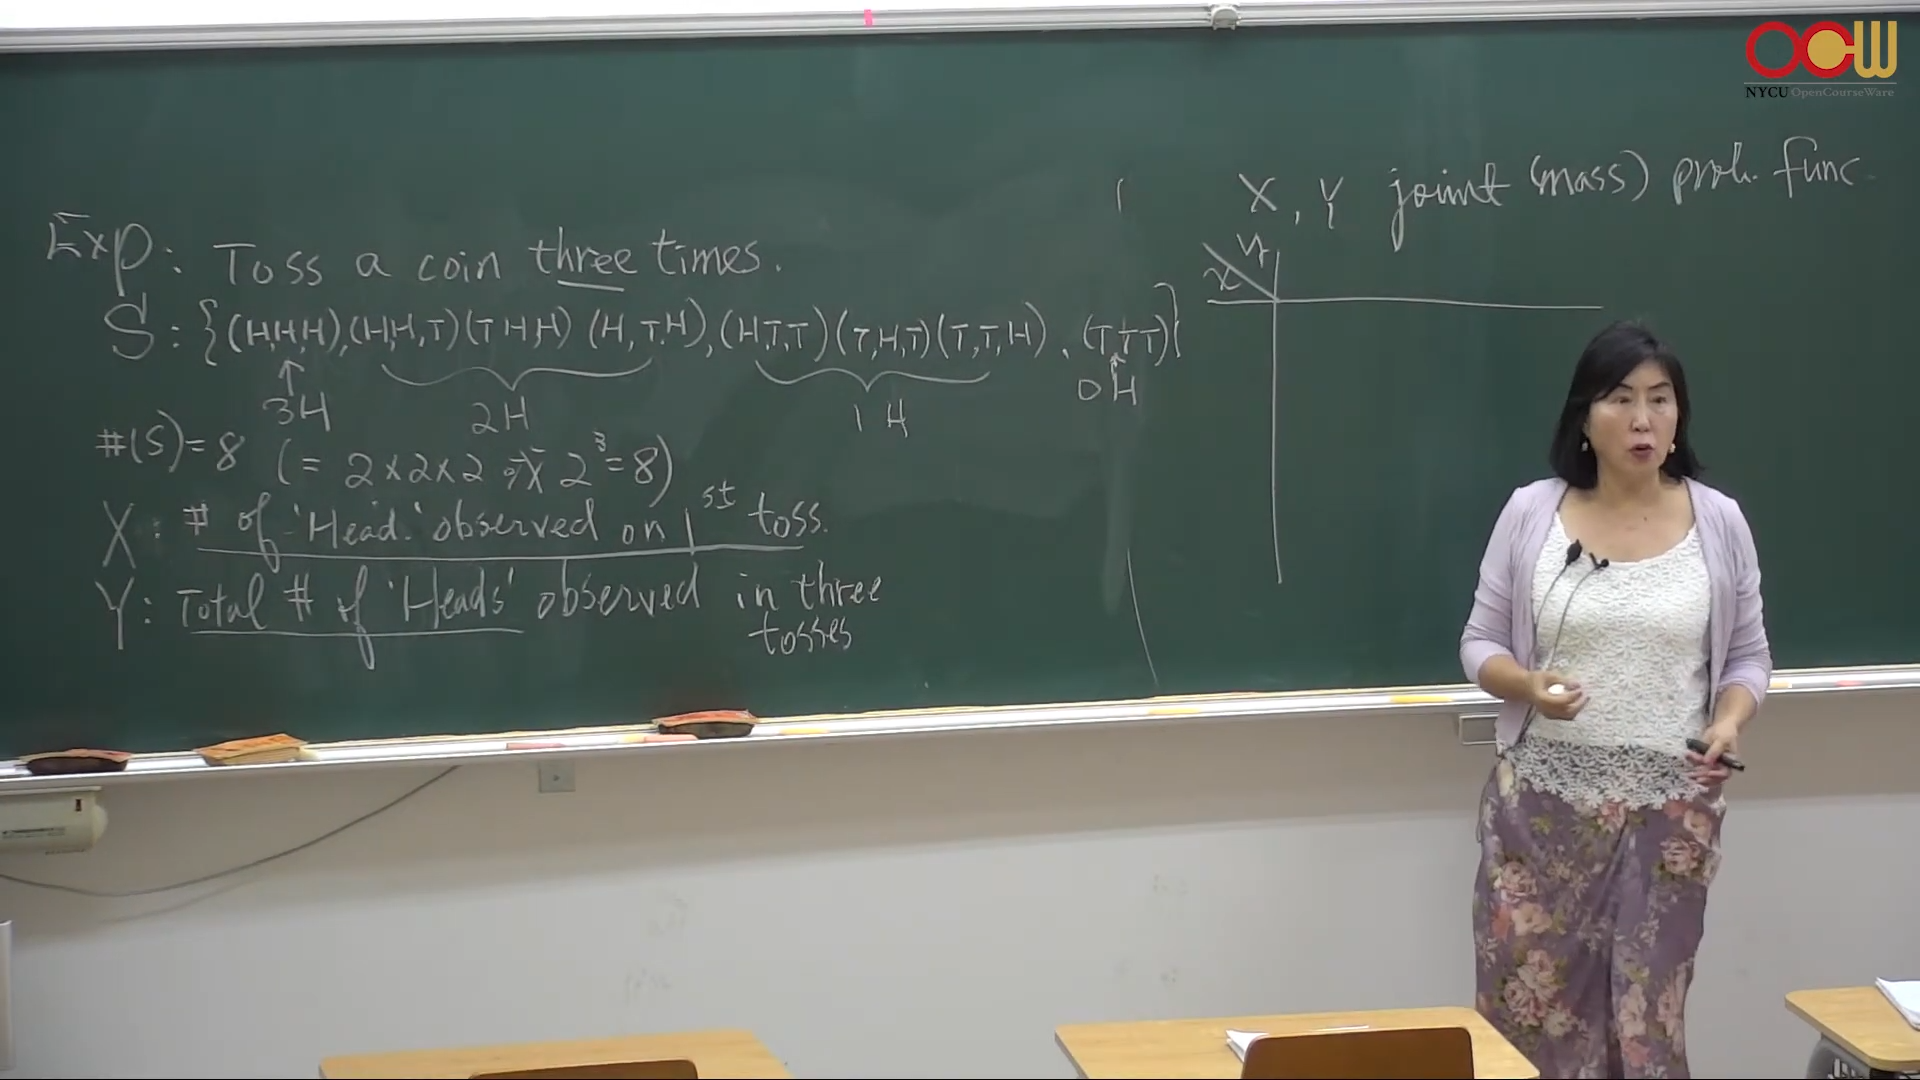 OCW
NYCU OpenCourseWare
Exp: Toss a coin three times.
S: {(H,H,H),(H,H,T)(T,H,H) (H,T,H),(H,T,T)(T,H,T)(T,T,H), (T,T,T)}
3H 2H 1H 0H
#(S)=8 (= 2×2×2 2³=8)
X: # of 'Head' observed on 1st toss.
Y: Total # of 'Heads' observed in three
tosses
X, Y joint (mass) prob. func.
x y